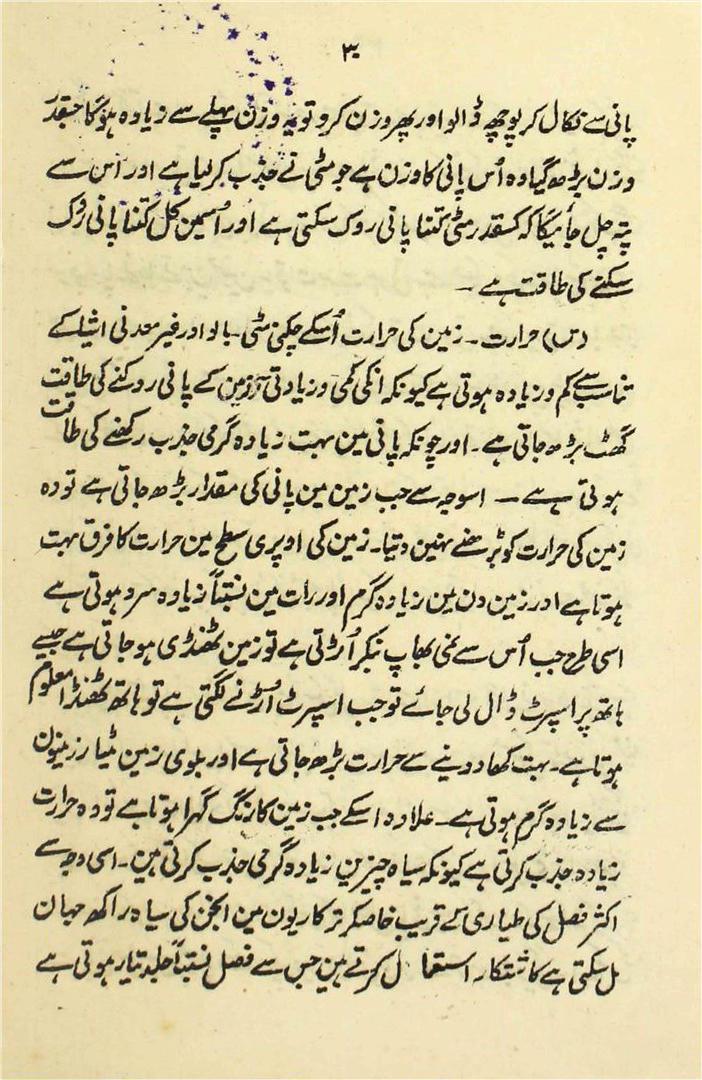 ۳۰
پانی سے نکال کر پوچھ ڈالو اور پھر وزن کرو تو یہ وزن پہلے سے زیادہ ہوگا جسقدر
وزن بڑھ گیا وہ اُس پانی کا وزن ہے جو مٹی نے جذب کر لیا ہے اور اس سے
پتہ چل جائیگا کہ کسقدر مٹی کتنا پانی روک سکتی ہے اور اُسمین کل کتنا پانی رُک
سکنے کی طاقت ہے ۔
(س) حرارت ۔ زمین کی حرارت اُسکے چکنی مٹی ۔ بالو اور غیر معدنی اشیا کے
تناسب سے کم و زیادہ ہوتی ہے کیونکہ انکی کمی و زیادتی زمین کے پانی روکنے کی طاقت
گھٹ بڑھ جاتی ہے ۔ اور چونکہ پانی مین بہت زیادہ گرمی جذب رکھنے کی طاقت
ہوتی ہے ۔ اسوجہ سے جب زمین مین پانی کی مقدار بڑھ جاتی ہے تو وہ
زمین کی حرارت کو بڑھنے نہین دیتا ۔ زمین کی اوپری سطح مین حرارت کا فرق بہت
ہوتا ہے اور زمین دن مین زیادہ گرم اور رات مین نسبتاً زیادہ سرد ہوتی ہے
اسی طرح جب اُس سے نمی بھاپ بنکر اُڑتی ہے تو زمین ٹھنڈی ہو جاتی ہے جیسے
ہاتھ پر اسپرٹ ڈال لی جائے تو جب اسپرٹ اُڑنے لگتی ہے تو ہاتھ ٹھنڈا معلوم
ہوتا ہے ۔ بہت کھاد دینے سے حرارت بڑھ جاتی ہے اور بلوی زمین مٹیار زمینون
سے زیادہ گرم ہوتی ہے ۔ علاوہ اسکے جب زمین کا رنگ گہرا ہوتا ہے تو وہ حرارت
زیادہ جذب کرتی ہے کیونکہ سیاہ چیزین زیادہ گرمی جذب کرتی ہین ۔ اسی وجہ سے
اکثر فصل کی طیاری کے قریب خاصکر ترکاریون مین انجن کی سیاہ راکھ جہان
مل سکتی ہے کاشتکار استعمال کرتے ہین جس سے فصل نسبتاً جلد تیار ہوتی ہے